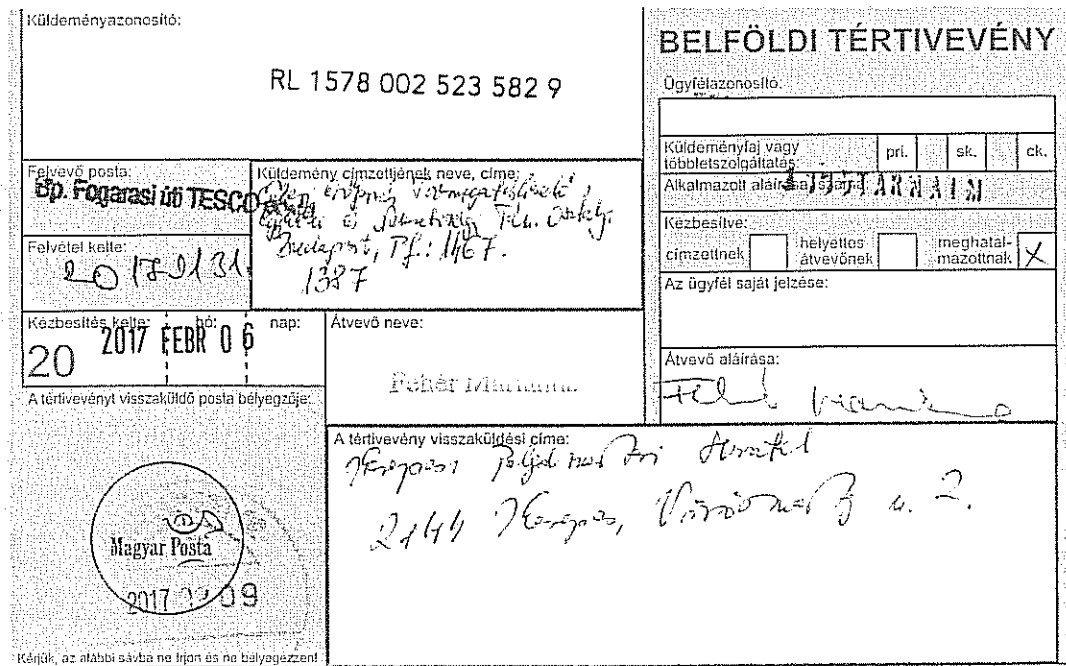 Küldeményazonosító:
RL 1578 002 523 582 9
BELFÖLDI TÉRTIVEVÉNY
Ügyfélazonosító:
Küldeményfaj vagy
többletszolgáltatás:
pri.
sk.
ck.
Alkalmazott aláírása,
Kézbesítve:
címzettnek
helyettes
átvevőnek
meghatal-
mazottnak X
Az ügyfél saját jelzése:
Felvevő posta:
Bp. Fogarasi úti TESCO
Küldemény címzettjének neve, címe:
Budapest, Pf.: 1467.
1387
Felvétel kelte:
2017 01 31.
Kézbesítés kelte: hó: nap:
20
2017 FEBR 06
Átvevő neve:
Fehér
Átvevő aláírása:
A tértivevényt visszaküldő posta bélyegzője:
Magyar Posta
2017 09
A tértivevény visszaküldési címe:
Kerepesi Polgármesteri Hivatal
2144 Kerepes, Vörösmarty u. 2.
Kérjük, az alábbi sávba ne írjon és ne bélyegezzen!